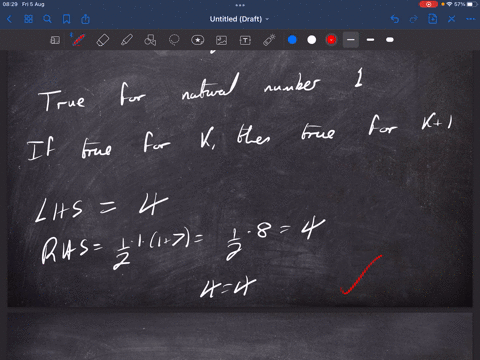 08:29 Fri 5 Aug
57%
Untitled (Draft)
True for natural number 1
If true for K, then true for K+1
LHS = 4
RHS = 1/2 · 1 · (1+7) = 1/2 · 8 = 4
4 = 4